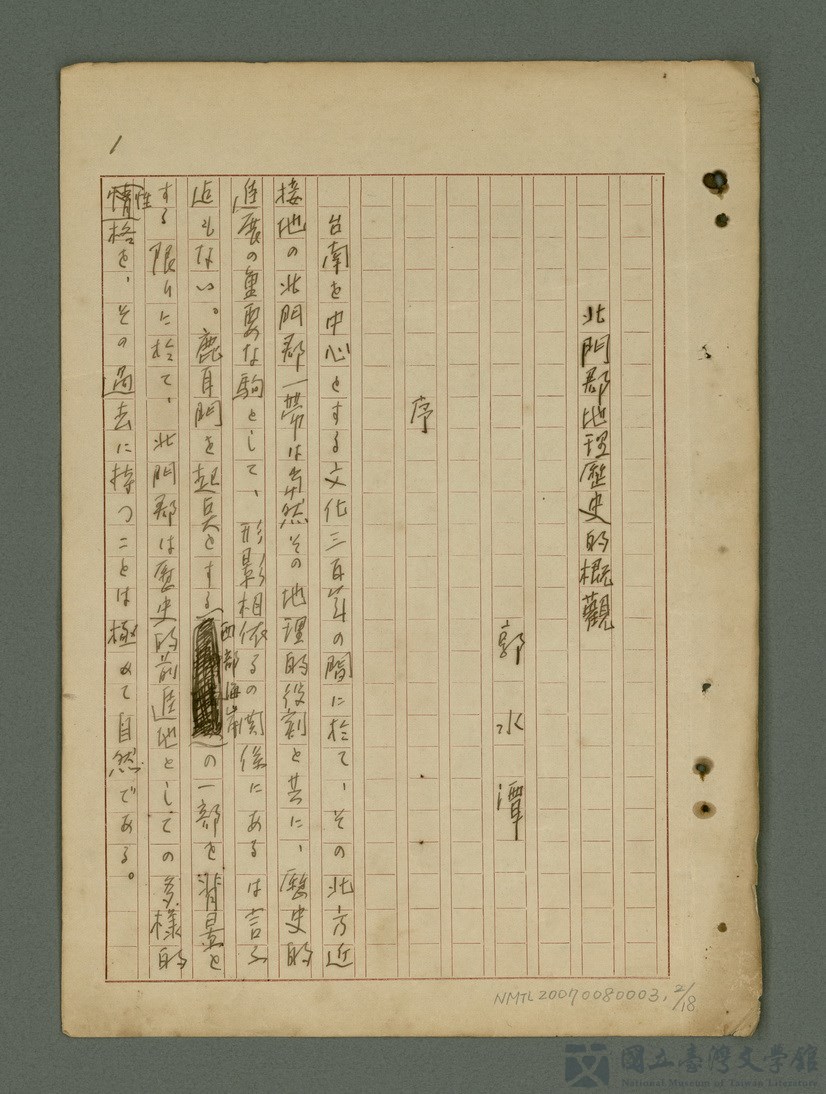 北門郡地理歴史的概觀
郭水潭
序
台南を中心とする文化三百年の間に於て、その北方近
接地の北門郡一帶は当然その地理的役割と共に、歴史的
進展の重要な駒として、形影相依るの関係にあるは言ふ
迄もない。鹿耳門を起点とする西部海岸の一部を背景と
する限りに於て、北門郡は歴史的前進地としての多様的
性格を、その過去に持つことは極めて自然である。
1
NMTL20070080003, 2/18
國立臺灣文學館
National Museum of Taiwan Literature